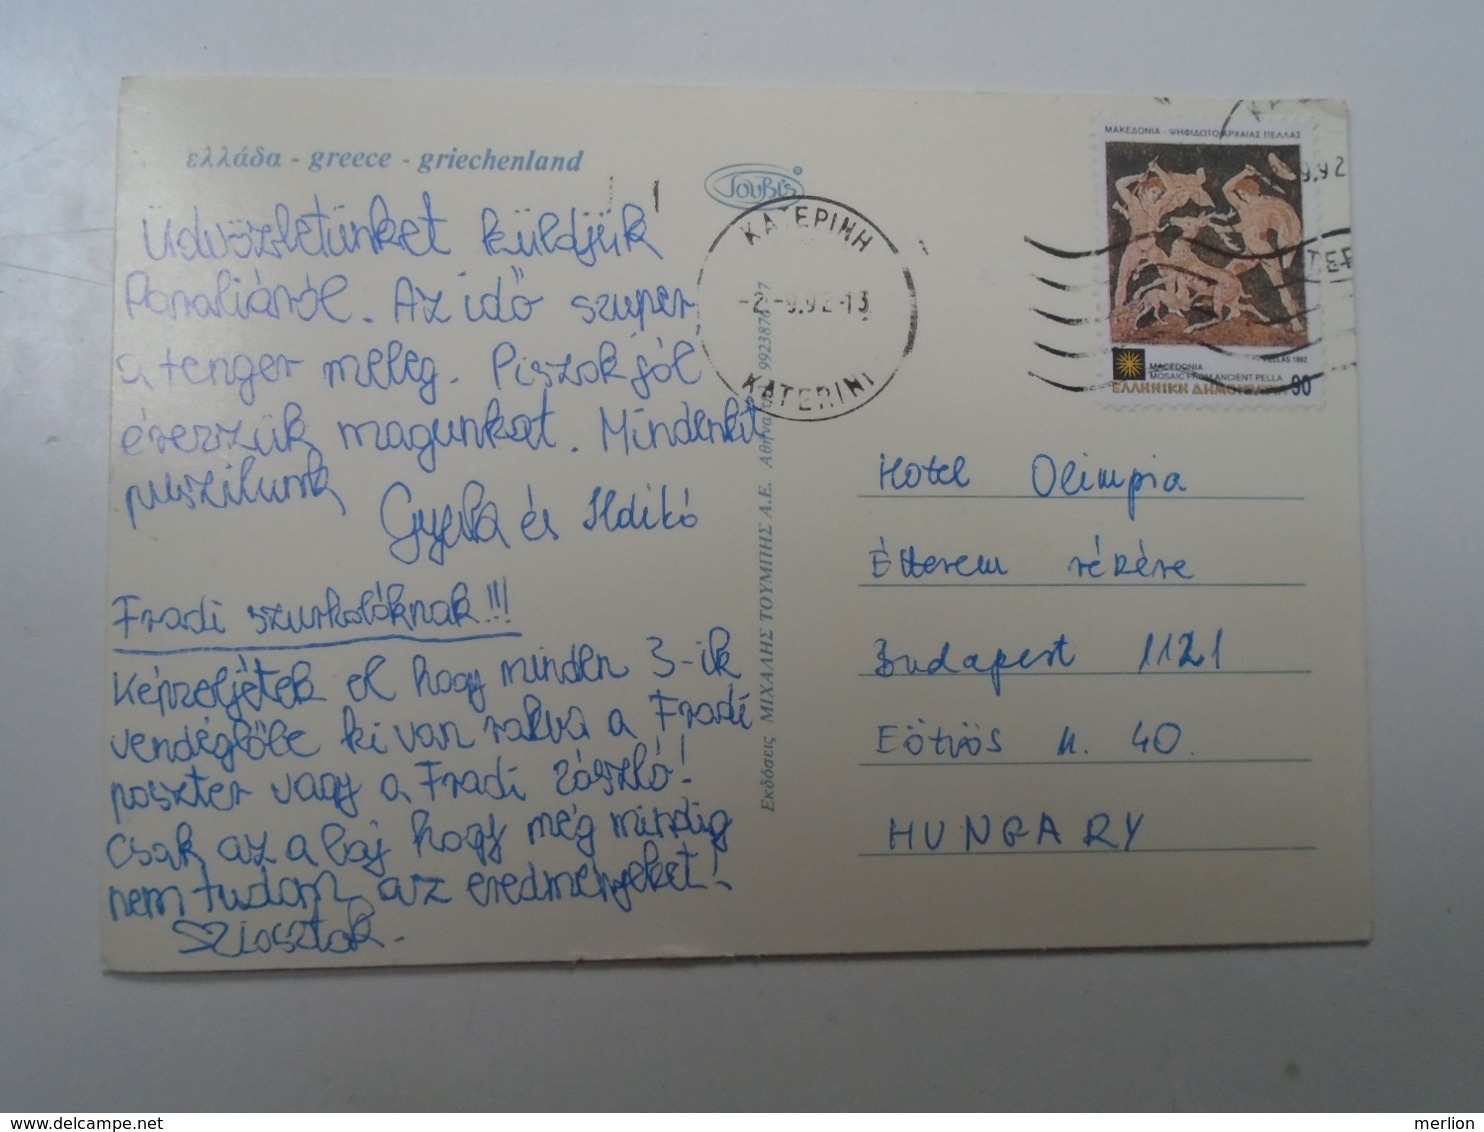 ελλάδα - greece - griechenland
Τουβί'ς
Üdvözletünket küldjük
Paraliáról. Az idő szuper,
a tenger meleg. Piszok jól
érezzük magunkat. Mindenkit
puszilunk
Gyula és Ildikó
Fradi szurkolóknak!!!
Képzeljétek el hogy minden 3-ik
vendéglőbe ki van rakva a Fradi
poszter vagy a Fradi zászló!
Csak az a baj hogy még mindig
nem tudom az eredményeket!
Sziasztok.
ΚΑΤΕΡΙΝΗ
-2.-9.92-13
KATERINI
Εκδόσεις ΜΙΧΑΛΗΣ ΤΟΥΜΠΗΣ Α.Ε. Αθήνα
ΜΑΚΕΔΟΝΙΑ - ΨΗΦΙΔΩΤΟ ΑΡΧΑΙΑΣ ΠΕΛΛΑΣ
9.92
HELLAS 1992
MACEDONIA -
MOSAIC FROM ANCIENT PELLA
ΕΛΛΗΝΙΚΗ ΔΗΜΟΚΡΑΤΙΑ 90
Hotel Olimpia
Étterem részére
Budapest 1121
Eötvös u. 40.
HUNGARY
merlion